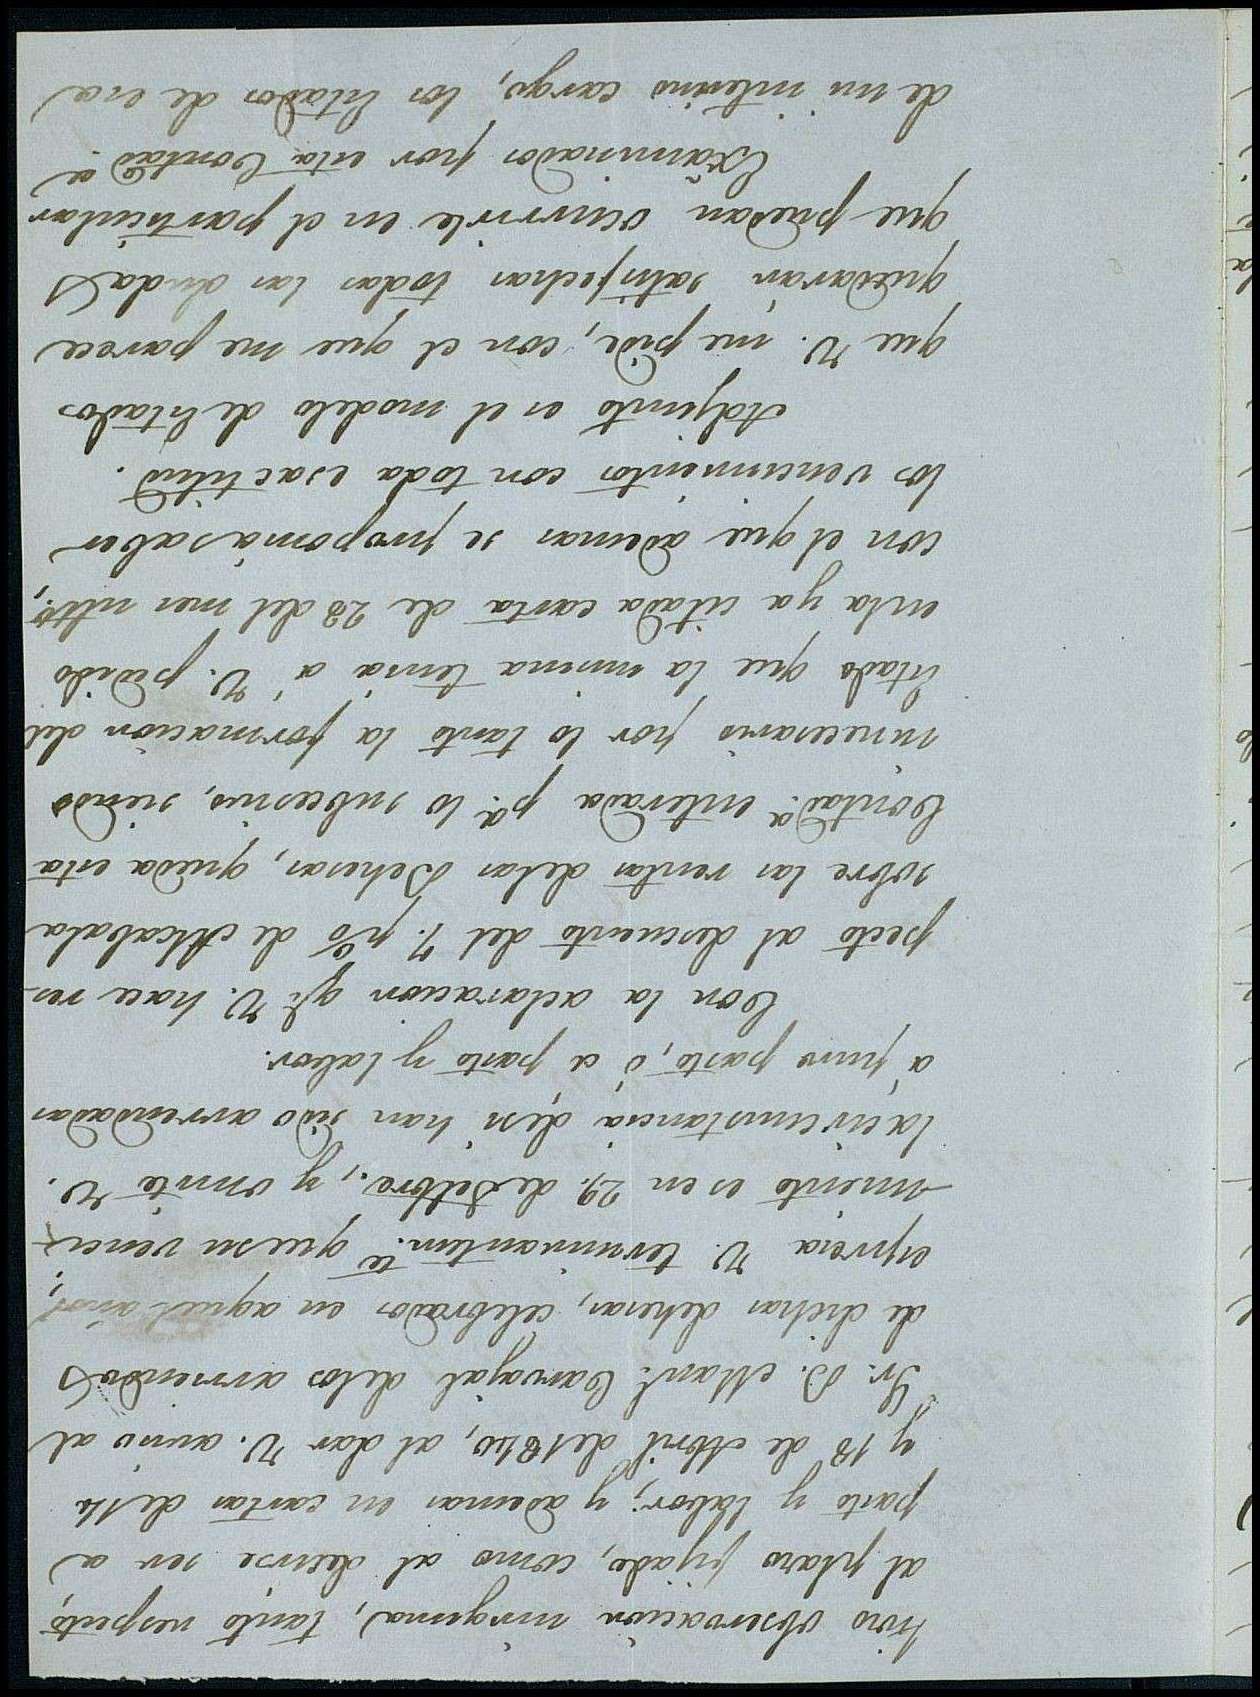 hizo observacion ninguna, tanto respecto
al plazo fijado, como al decirse ser a
pasto y labor; y ademas en cartas de 14
y 18 de Abril de 1840, al dar V. aviso al
Sr. D. Man.l Carvajal delos arriendos
de dichas dehesas, celebrados en aquel año,
espresa V. terminantem.te que su venci-
miento es en 29. de Setbre., y omite V.
la circunstancia de si han sido arrendadas
á puro pasto, ó a pasto y labor.
Con la aclaracion q.e V. hace res-
pecto al descuento del 7. p% de Alcabala
sobre las rentas delas Dehesas, queda esta
Contad.a enterada p.a lo subcesivo, siendo
innecesario por lo tanto la formacion del
Estado que la misma tenia á V. pedido
en la ya citada carta de 28 del mes ultº.,
con el que ademas se proponia saber
los vencimientos con toda esactitud.
Adjunto es el modelo de Estados
que V. me pide, con el que me parece
quedarán satisfechas todas las dudas
que puedan ocurrirle en el particular
Examinados por esta Contad.a
de mi interino cargo, los Estados de esa